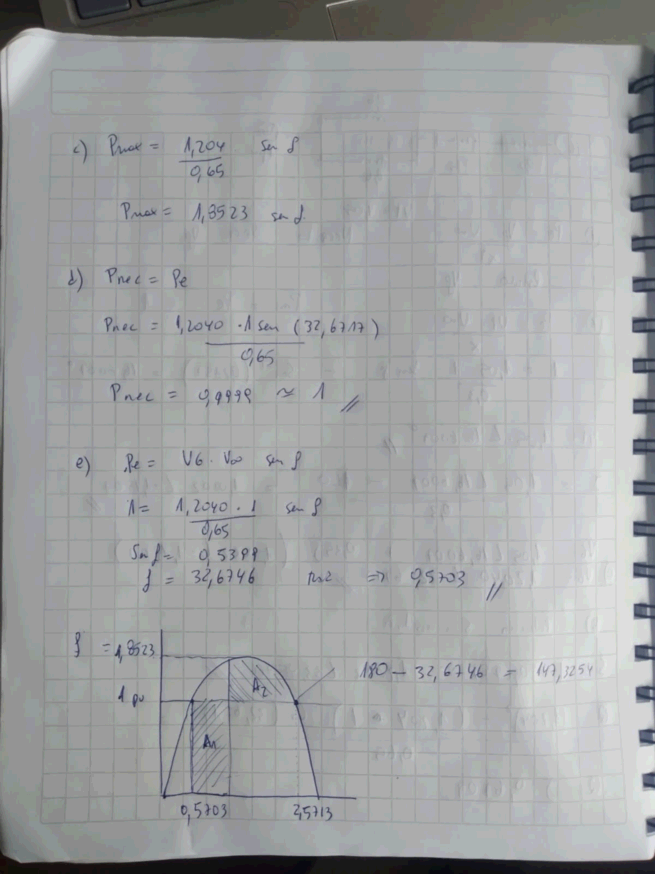 c) Pmax = 1,204 / 0,65 sen δ
Pmax = 1,8523 sen δ
d) Pmec = Pe
Pmec = 1,2040 · 1 sen (32,6717) / 0,65
Pmec = 0,9999 ≈ 1 //
e) Pe = VG · V∞ sen δ
1 = 1,2040 · 1 / 0,65 sen δ
Sen δ = 0,5399
δ = 32,6746 => 0,5703 //
= 1,8523
180 - 32,6746 = 147,3254
1 pu
A2
A1
0,5703 2,5713